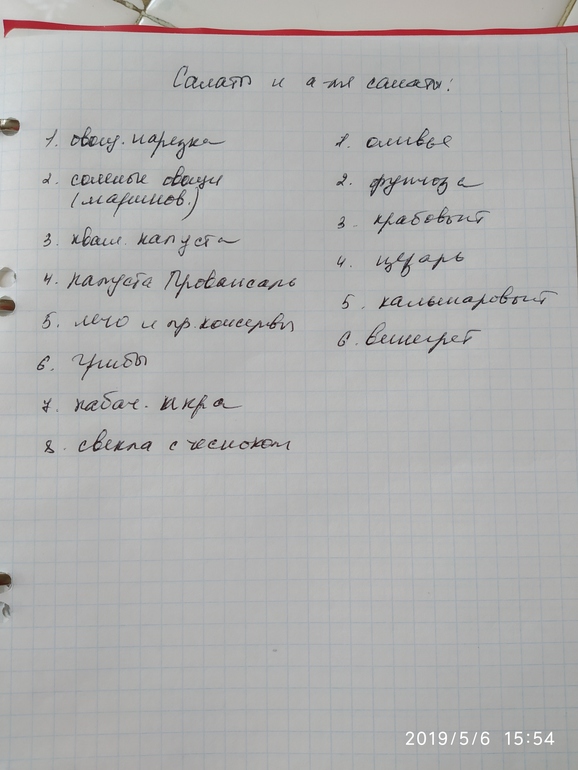 Салаты и а-ля салаты:
1. овощ. нарезка
2. соленые овощи
(маринов.)
3. кваш. капуста
4. капуста Провансаль
5. лечо и пр. консервы
6. грибы
7. кабач. икра
8. свекла с чесноком
1. оливье
2. фунчоза
3. крабовый
4. цезарь
5. кальмаровый
6. винегрет
2019/5/6 15:54